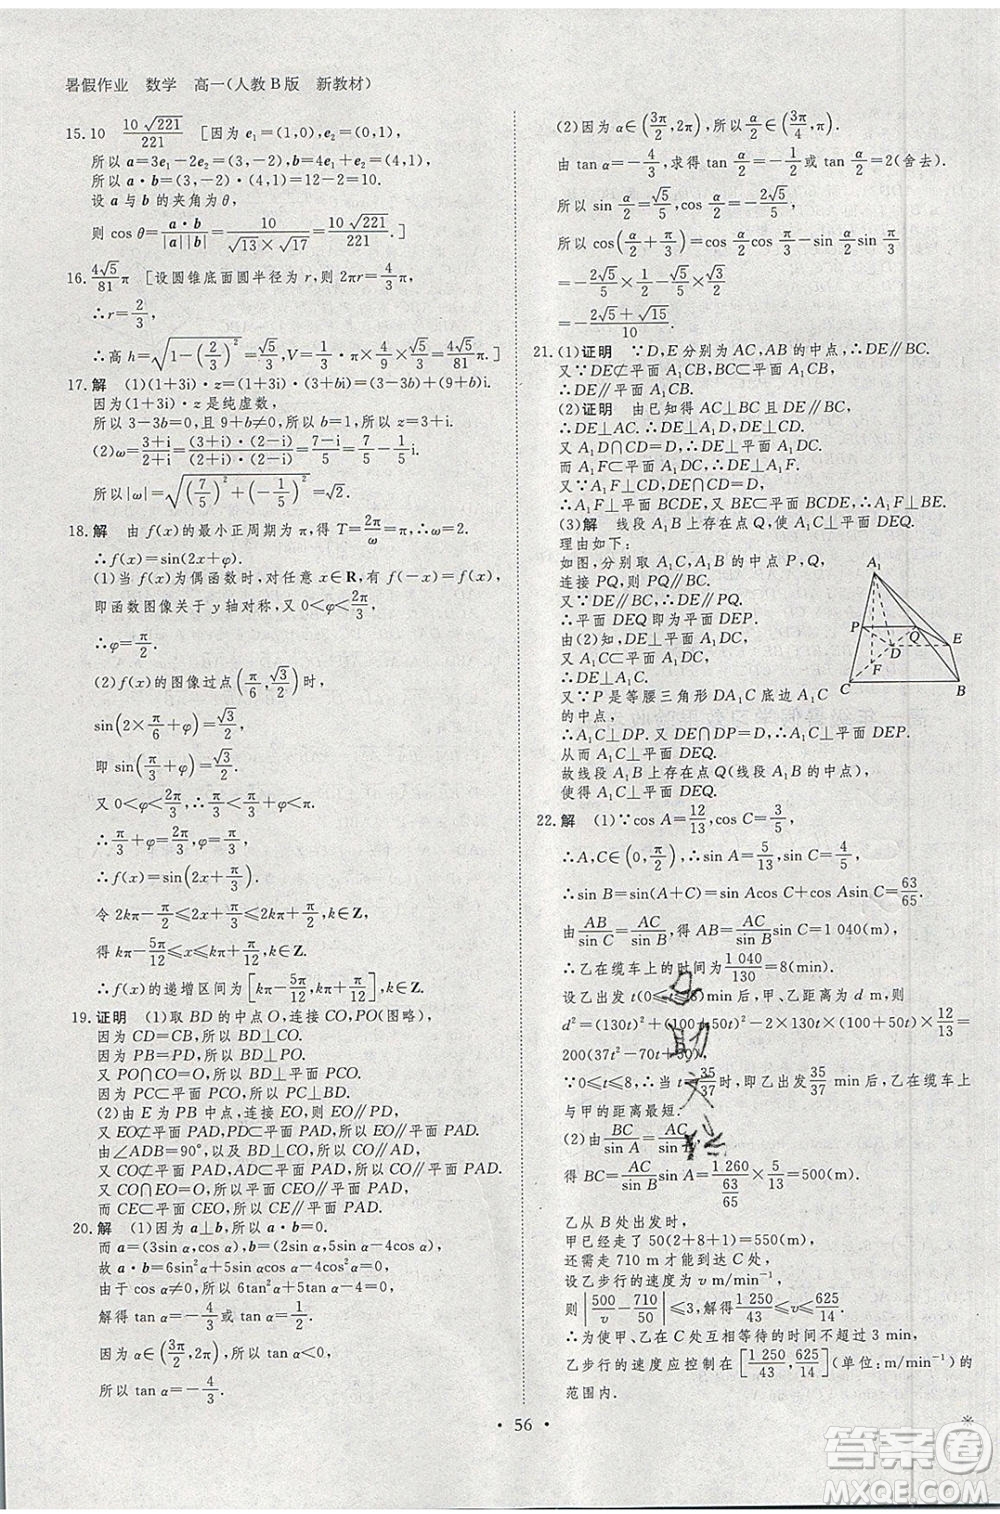 暑假作业 数学 高一(人教B版 新教材)
15.10 10√221/221 [因为e₁=(1,0),e₂=(0,1),
所以a=3e₁-2e₂=(3,-2),b=4e₁+e₂=(4,1),
所以a·b=(3,-2)·(4,1)=12-2=10.
设a与b的夹角为θ,
则cosθ=a·b/|a||b|=10/(√13×√17)=10√221/221.]
16.4√5/81 π [设圆锥底面圆半径为r,则2πr=4/3 π,
∴r=2/3,
∴高h=√(1-(2/3)²)=√5/3,V=1/3·π·r²·h=4√5/81 π.]
17.解 (1)(1+3i)·z=(1+3i)(3+bi)=(3-3b)+(9+b)i.
因为(1+3i)·z是纯虚数,
所以3-3b=0,且9+b≠0,所以b=1,所以z=3+i.
(2)ω=(3+i)/(2+i)=(3+i)·(2-i)/(2+i)·(2-i)=(7-i)/5=7/5-1/5 i.
所以|ω|=√((7/5)²+(-1/5)²)=√2.
18.解 由f(x)的最小正周期为π,得T=2π/ω=π,∴ω=2.
∴f(x)=sin(2x+φ).
(1)当f(x)为偶函数时,对任意x∈R,有f(-x)=f(x),
即函数图像关于y轴对称,又0<φ<2π/3,
∴φ=π/2.
(2)f(x)的图像过点(π/6,√3/2)时,
sin(2×π/6+φ)=√3/2,
即sin(π/3+φ)=√3/2.
又0<φ<2π/3,∴π/3<π/3+φ<π.
∴π/3+φ=2π/3,φ=π/3.
∴f(x)=sin(2x+π/3).
令2kπ-π/2≤2x+π/3≤2kπ+π/2,k∈Z,
得kπ-5π/12≤x≤kπ+π/12,k∈Z.
∴f(x)的递增区间为[kπ-5π/12,kπ+π/12],k∈Z.
19.证明 (1)取BD的中点O,连接CO,PO(图略),
因为CD=CB,所以BD⊥CO.
因为PB=PD,所以BD⊥PO.
又PO∩CO=O,所以BD⊥平面PCO.
因为PC⊂平面PCO,所以PC⊥BD.
(2)由E为PB中点,连接EO,则EO∥PD,
又EO⊄平面PAD,PD⊂平面PAD,所以EO∥平面PAD.
由∠ADB=90°,以及BD⊥CO,所以CO∥AD,
又CO⊄平面PAD,AD⊂平面PAD,所以CO∥平面PAD.
又CO∩EO=O,所以平面CEO∥平面PAD,
而CE⊂平面CEO,所以CE∥平面PAD.
20.解 (1)因为a⊥b,所以a·b=0.
而a=(3sin α,cos α),b=(2sin α,5sin α-4cos α),
故a·b=6sin²α+5sin αcos α-4cos²α=0.
由于cos α≠0,所以6tan²α+5tan α-4=0,
解得tan α=-4/3或tan α=1/2.
因为α∈(3π/2,2π),所以tan α<0,
所以tan α=-4/3.
(2)因为α∈(3π/2,2π),所以α/2∈(3π/4,π).
由tan α=-4/3,求得tan α/2=-1/2或tan α/2=2(舍去).
所以sin α/2=√5/5,cos α/2=-2√5/5,
所以cos(α/2+π/3)=cos α/2 cos π/3-sin α/2 sin π/3
=-2√5/5×1/2-√5/5×√3/2
=-(2√5+√15)/10.
21.(1)证明 ∵D,E分别为AC,AB的中点,∴DE∥BC.
又∵DE⊄平面A₁CB,BC⊂平面A₁CB,
∴DE∥平面A₁CB.
(2)证明 由已知得AC⊥BC且DE∥BC,
∴DE⊥AC.∴DE⊥A₁D,DE⊥CD.
又A₁D∩CD=D,∴DE⊥平面A₁DC.
而A₁F⊂平面A₁DC,∴DE⊥A₁F.
又∵A₁F⊥CD,DE∩CD=D,
∴A₁F⊥平面BCDE,又BE⊂平面BCDE,∴A₁F⊥BE.
(3)解 线段A₁B上存在点Q,使A₁C⊥平面DEQ.
理由如下:
如图,分别取A₁C,A₁B的中点P,Q,
连接PQ,则PQ∥BC.
又∵DE∥BC,∴DE∥PQ.
∴平面DEQ即为平面DEP.
由(2)知,DE⊥平面A₁DC,
又A₁C⊂平面A₁DC,
∴DE⊥A₁C.
又∵P是等腰三角形DA₁C底边A₁C
的中点,
∴A₁C⊥DP.又DE∩DP=D,
∴A₁C⊥平面DEP.
从而A₁C⊥平面DEQ.
故线段A₁B上存在点Q(线段A₁B的中点),
使得A₁C⊥平面DEQ.
A₁
P
Q
D
E
F
C
B
22.解 (1)∵cos A=12/13,cos C=3/5,
∴A,C∈(0,π/2),∴sin A=5/13,sin C=4/5.
∴sin B=sin(A+C)=sin Acos C+cos Asin C=63/65.
由AB/sin C=AC/sin B,得AB=AC/sin B·sin C=1 040(m),
∴乙在缆车上的时间为1 040/130=8(min).
设乙出发t(0≤t≤8)min后,甲、乙距离为d m,则
d²=(130t)²+(100+50t)²-2×130t×(100+50t)×12/13=
200(37t²-70t+50).
∵0≤t≤8,∴当t=35/37时,即乙出发35/37 min后,乙在缆车上
与甲的距离最短.
(2)由BC/sin A=AC/sin B,
得BC=AC/sin B·sin A=1 260/(63/65)×5/13=500(m).
乙从B处出发时,
甲已经走了50(2+8+1)=550(m),
还需走710 m才能到达C处,
设乙步行的速度为v m/min⁻¹,
则|500/v-710/50|≤3,解得1 250/43≤v≤625/14.
∴为使甲、乙在C处互相等待的时间不超过3 min,
乙步行的速度应控制在[1 250/43,625/14](单位:m/min⁻¹)的
范围内.
作
助
文
注
• 56 •
答案卷
MXQE.COM